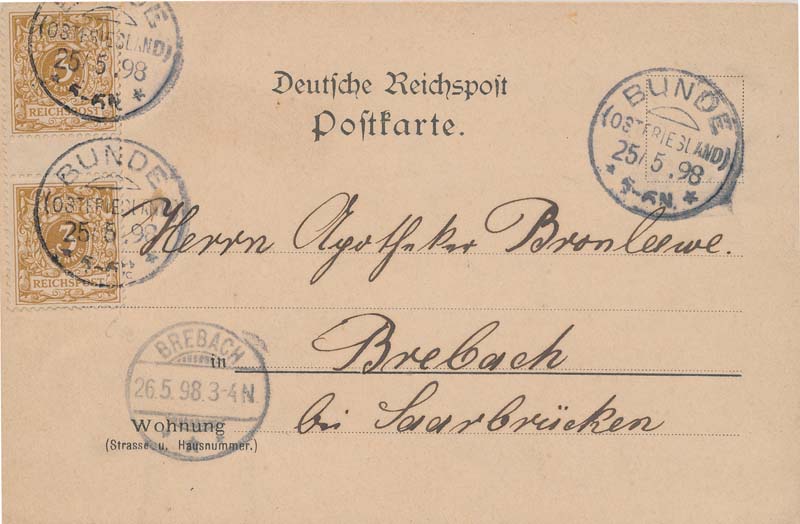 BUNDE
(OSTFRIESLAND)
25/5.98
* 5-6N. *
3
REICHSPOST
Deutsche Reichspost
Postkarte.
BUNDE
(OSTFRIESLAND)
25/5.98
* 5-6N. *
BUNDE
(OSTFRIESLAND)
25/5.98
3
REICHSPOST
Herrn Apotheker
Brebach
in
bei Saarbrücken
BREBACH
26.5.98.3-4N
Wohnung
(Strasse u. Hausnummer.)